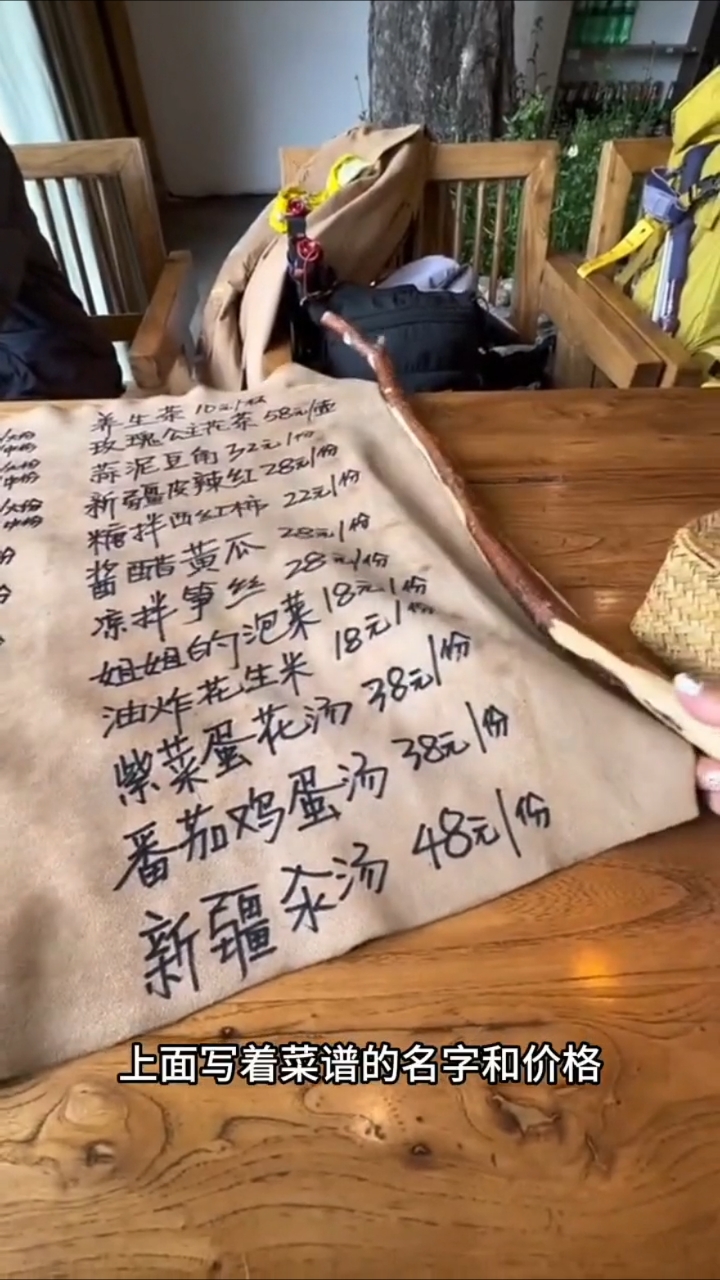 养生茶 10元/杯
玫瑰公主花茶 58元/壶
蒜泥豆角 32元/份
新疆皮辣红 28元/份
糖拌西红柿 22元/份
酱醋黄瓜 28元/份
凉拌笋丝 28元/份
姐姐的泡菜 18元/份
油炸花生米 18元/份
紫菜蛋花汤 38元/份
番茄鸡蛋汤 38元/份
新疆汆汤 48元/份
上面写着菜谱的名字和价格